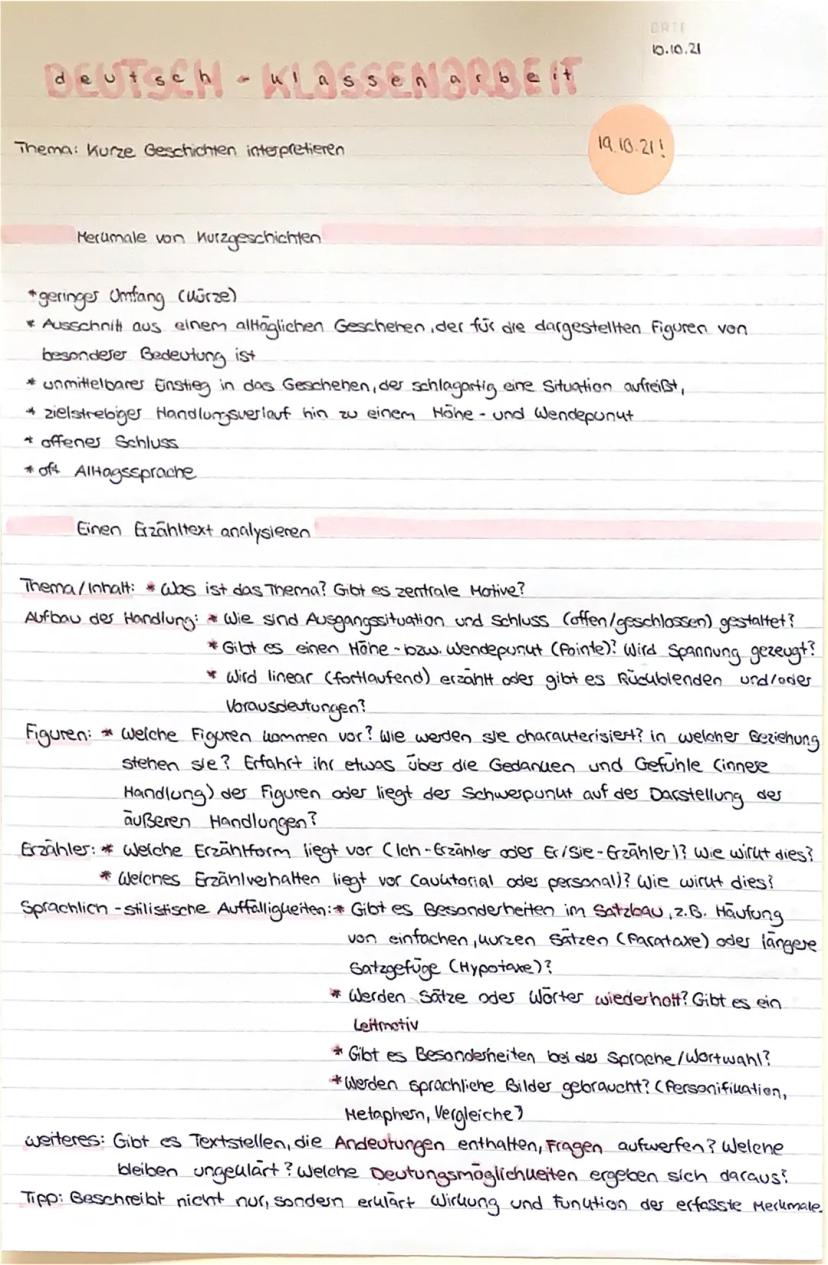 DATE
10.10.21
DEUTSCH - KLASSENARBEIT
deutsch - klassenarbeit
19.10.21!
Thema: Kurze Geschichten interpretieren
Merkmale von Kurzgeschichten
*geringer Umfang (Kürze)
* Ausschnitt aus einem alltäglichen Geschehen, der für die dargestellten Figuren von
besonderer Bedeutung ist
* unmittelbarer Einstieg in das Geschehen, der schlagartig eine Situation aufreißt,
* zielstrebiger Handlungsverlauf hin zu einem Höhe- und Wendepunkt
* offener Schluss
* oft Alltagssprache
Einen Erzähltext analysieren
Thema/Inhalt: * Was ist das Thema? Gibt es zentrale Motive?
Aufbau der Handlung: * Wie sind Ausgangssituation und Schluss (offen/geschlossen) gestaltet?
* Gibt es einen Höhe- bzw. Wendepunkt (Pointe)? Wird Spannung gezeugt?
* Wird linear (fortlaufend) erzählt oder gibt es Rückblenden und/oder
Vorausdeutungen?
Figuren: * Welche Figuren kommen vor? Wie werden sie charakterisiert? in welcher Beziehung
stehen sie? Erfahrt ihr etwas über die Gedanken und Gefühle (innere
Handlung) der Figuren oder liegt der Schwerpunkt auf der Darstellung der
äußeren Handlungen?
Erzähler: * Welche Erzählform liegt vor (Ich-Erzähler oder Er/Sie-Erzähler)? Wie wirkt dies?
* Welches Erzählverhalten liegt vor (auktorial oder personal)? Wie wirkt dies?
Sprachlich-stilistische Auffälligkeiten: * Gibt es Besonderheiten im Satzbau, z.B. Häufung
von einfachen, kurzen Sätzen (Parataxe) oder längere
Satzgefüge (Hypotaxe)?
* Werden Sätze oder Wörter wiederholt? Gibt es ein
Leitmotiv
* Gibt es Besonderheiten bei der Sprache/Wortwahl?
* Werden sprachliche Bilder gebraucht? (Personifikation,
Metaphern, Vergleiche)
weiteres: Gibt es Textstellen, die Andeutungen enthalten, Fragen aufwerfen? Welche
bleiben ungeklärt? Welche Deutungsmöglichkeiten ergeben sich daraus?
Tipp: Beschreibt nicht nur, sondern erklärt Wirkung und Funktion der erfasste Merkmale.